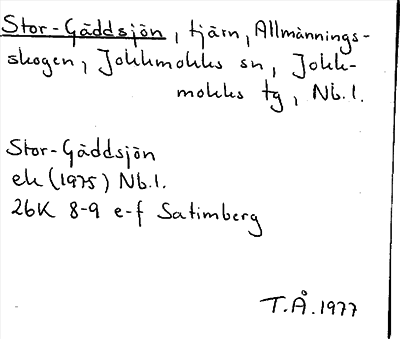 Stor-Gäddsjön, tjärn, Allmännings-
skogen, Jokkmokks sn, Jokk-
mokks tg, Nb.l.
Stor-Gäddsjön
ek (1975) Nb.l.
26K 8-9 e-f Satimberg
T.Å. 1977